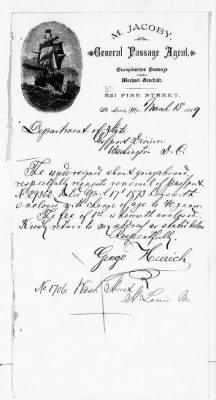 M. JACOBY,
General Passage Agent,
Europäisches Passage
Wechsel Geschäft.
521 PINE STREET.
St. Louis, Mo., March 13 1889
Department of State
Passport Division
Washington D. C.
The undersigned about going abroad
respectfully requests renewal of passport
No 29362 dated Apr. 17th 1873 herewith
enclosed with change of age to
The fee of is herewith enclosed.
Kindly return to my address as stated below
Respectfully
George
No 1706 Wash Street
St Louis Mo.